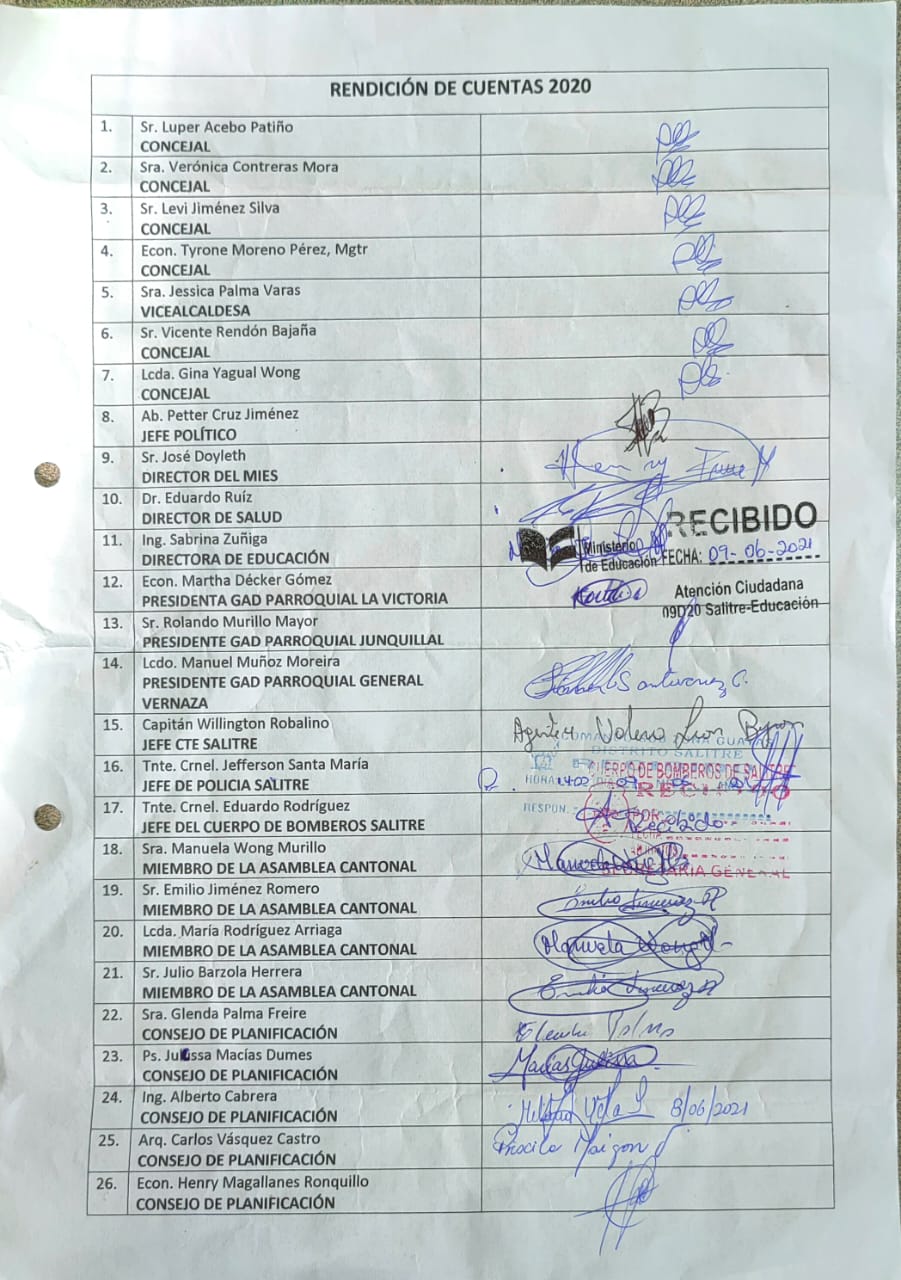 RENDICIÓN DE CUENTAS 2020
1. Sr. Luper Acebo Patiño
CONCEJAL
2. Sra. Verónica Contreras Mora
CONCEJAL
3. Sr. Levi Jiménez Silva
CONCEJAL
4. Econ. Tyrone Moreno Pérez, Mgtr
CONCEJAL
5. Sra. Jessica Palma Varas
VICEALCALDESA
6. Sr. Vicente Rendón Bajaña
CONCEJAL
7. Lcda. Gina Yagual Wong
CONCEJAL
8. Ab. Petter Cruz Jiménez
JEFE POLÍTICO
9. Sr. José Doyleth
DIRECTOR DEL MIES
10. Dr. Eduardo Ruíz
DIRECTOR DE SALUD
RECIBIDO
11. Ing. Sabrina Zuñiga
DIRECTORA DE EDUCACIÓN
Ministerio
de Educación FECHA: 09-06-2021
12. Econ. Martha Décker Gómez
PRESIDENTA GAD PARROQUIAL LA VICTORIA
Atención Ciudadana
09D20 Salitre-Educación
13. Sr. Rolando Murillo Mayor
PRESIDENTE GAD PARROQUIAL JUNQUILLAL
14. Lcdo. Manuel Muñoz Moreira
PRESIDENTE GAD PARROQUIAL GENERAL
VERNAZA
15. Capitán Willington Robalino
JEFE CTE SALITRE
DISTRITO SALITRE
16. Tnte. Crnel. Jefferson Santa María
JEFE DE POLICIA SALITRE
CUERPO DE BOMBEROS DE SALITRE
HORA
17. Tnte. Crnel. Eduardo Rodríguez
JEFE DEL CUERPO DE BOMBEROS SALITRE
RESPON.
Recibido
18. Sra. Manuela Wong Murillo
MIEMBRO DE LA ASAMBLEA CANTONAL
SECRETARIA GENERAL
19. Sr. Emilio Jiménez Romero
MIEMBRO DE LA ASAMBLEA CANTONAL
20. Lcda. María Rodríguez Arriaga
MIEMBRO DE LA ASAMBLEA CANTONAL
21. Sr. Julio Barzola Herrera
MIEMBRO DE LA ASAMBLEA CANTONAL
22. Sra. Glenda Palma Freire
CONSEJO DE PLANIFICACIÓN
23. Ps. Julissa Macías Dumes
CONSEJO DE PLANIFICACIÓN
24. Ing. Alberto Cabrera
CONSEJO DE PLANIFICACIÓN
8/06/2021
25. Arq. Carlos Vásquez Castro
CONSEJO DE PLANIFICACIÓN
26. Econ. Henry Magallanes Ronquillo
CONSEJO DE PLANIFICACIÓN